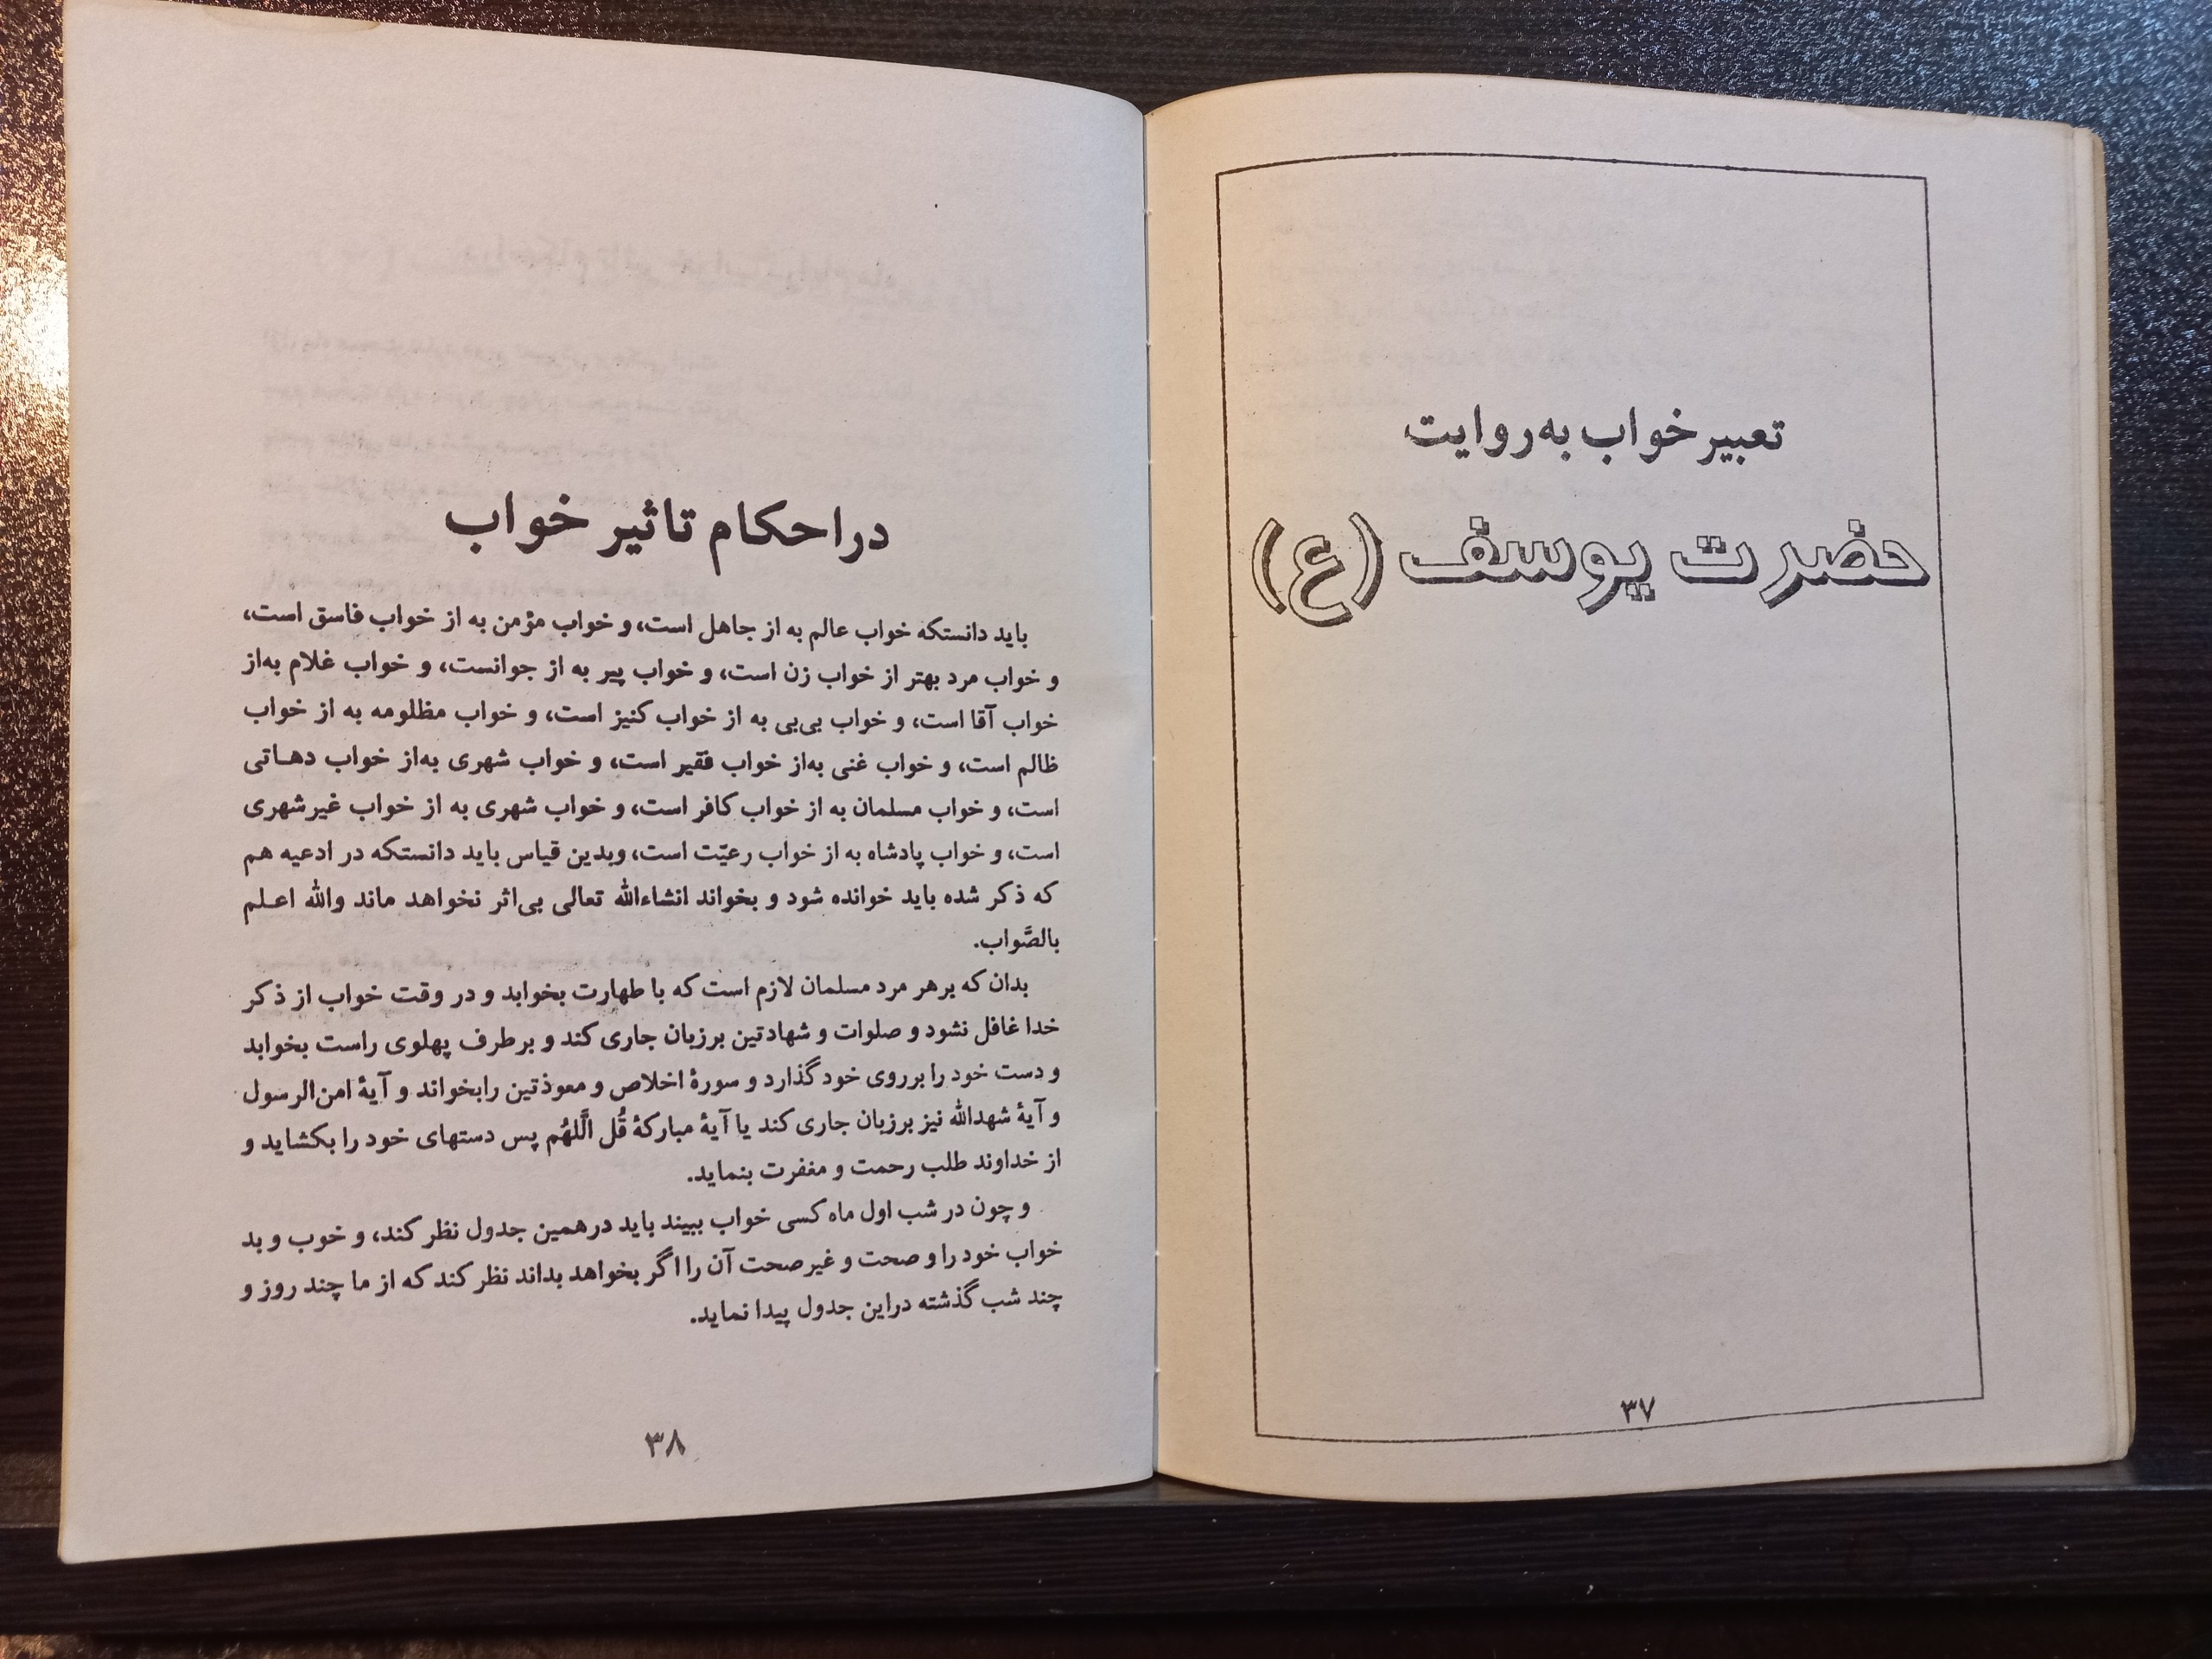 تعبیر خواب به روایت
حضرت یوسف (ع)
۳۷
در احکام تاثیر خواب
باید دانستکه خواب عالم به از جاهل است، و خواب مؤمن به از خواب فاسق است،
و خواب مرد بهتر از خواب زن است، و خواب پیر به از جوانست، و خواب غلام به‌از
خواب آقا است، و خواب بی‌بی به از خواب کنیز است، و خواب مظلومه به از خواب
ظالم است، و خواب غنی به‌از خواب فقیر است، و خواب شهری به‌از خواب دهـاتی
است، و خواب مسلمان به از خواب کافر است، و خواب شهری به از خواب غیرشهری
است، و خواب پادشاه به از خواب رعیّت است، وبدین قیاس باید دانستکه در ادعیه هم
که ذکر شده باید خوانده شود و بخواند انشاءالله تعالی بی‌اثر نخواهد ماند والله اعـلم
بالصَّواب.
بدان که برهر مرد مسلمان لازم است که با طهارت بخوابد و در وقت خواب از ذکر
خدا غافل نشود و صلوات و شهادتین برزبان جاری کند و برطرف پهلوی راست بخوابد
و دست خود را برروی خود گذارد و سورهٔ اخلاص و معوذتین رابخواند و آیهٔ امن‌الرسول
و آیهٔ شهدالله نیز برزبان جاری کند یا آیهٔ مبارکهٔ قُل اللَّهُم پس دستهای خود را بکشاید و
از خداوند طلب رحمت و مغفرت بنماید.
و چون در شب اول ماه کسی خواب ببیند باید درهمین جدول نظر کند، و خوب و بد
خواب خود را و صحت و غیرصحت آن را اگر بخواهد بداند نظر کند که از ما چند روز و
چند شب گذشته دراین جدول پیدا نماید.
۳۸